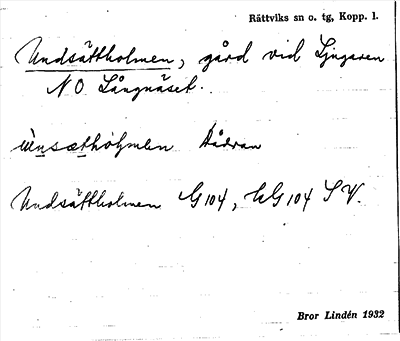 Rättviks sn o. tg, Kopp. l.
Undsättholmen, gård vid Ljugaren
NO Långnäset.
Dådran
Undsättholmen G 104, UG 104 SV.
Bror Lindén 1932